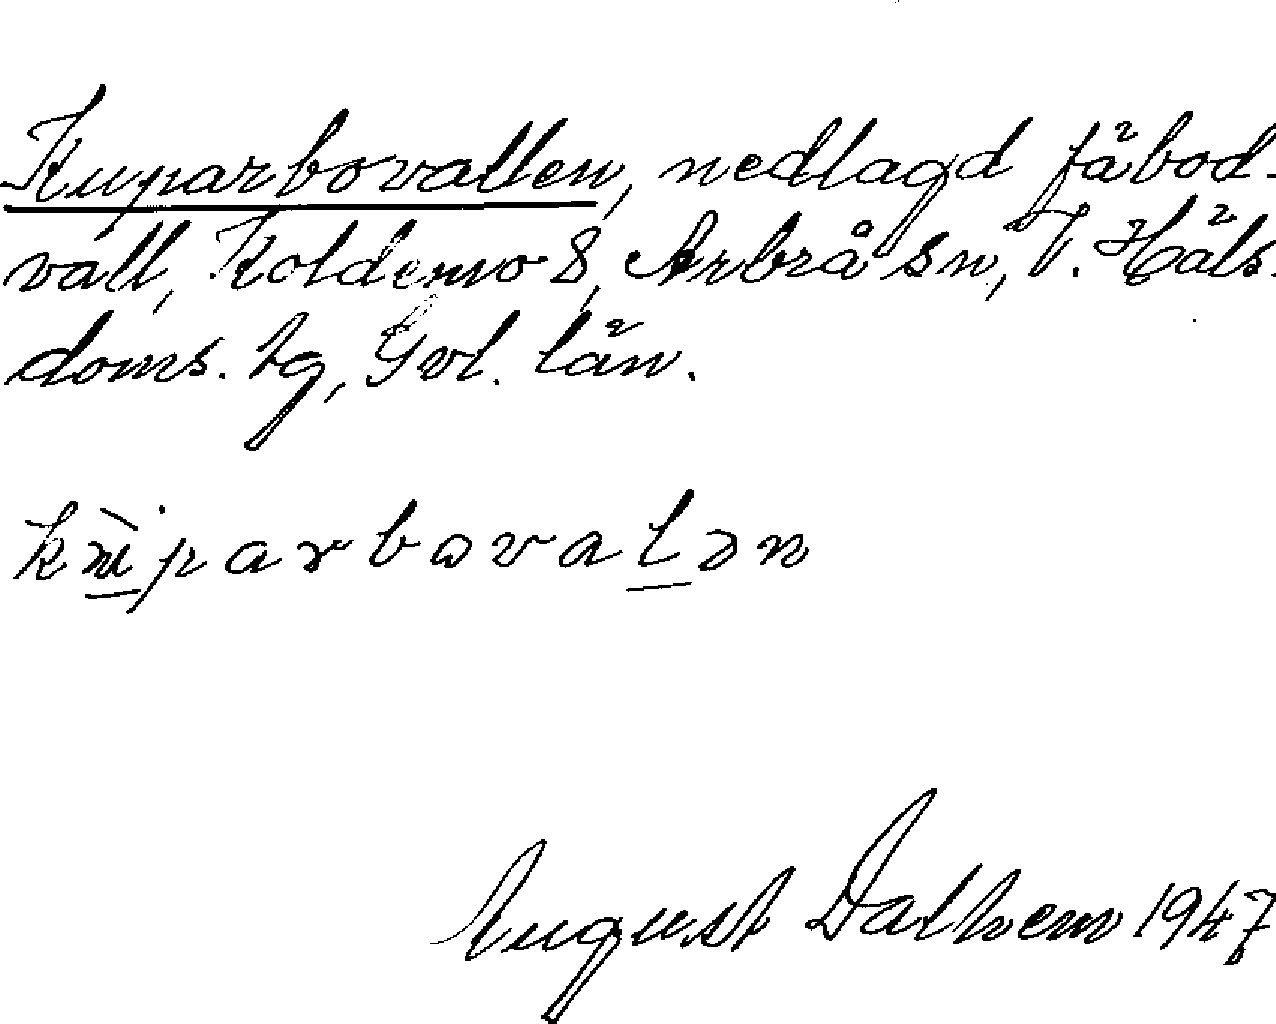 Kuparbovallen, nedlagd fäbod-
vall, Koldemo 8, Arbrå sn, V. Häls.
doms. tg, Gvl. län.
kùparbovalən
August Dalhem 1947